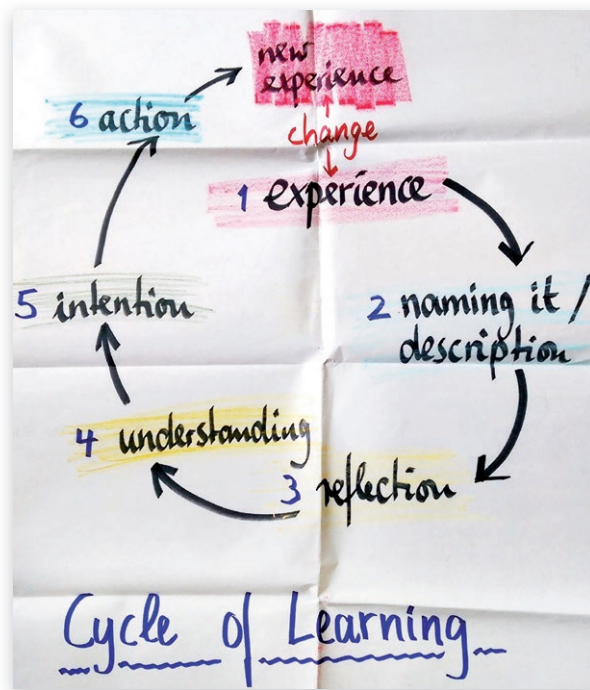 new
experience
change
1 experience
2 naming it /
description
3 reflection
4 understanding
5 intention
6 action
Cycle of Learning